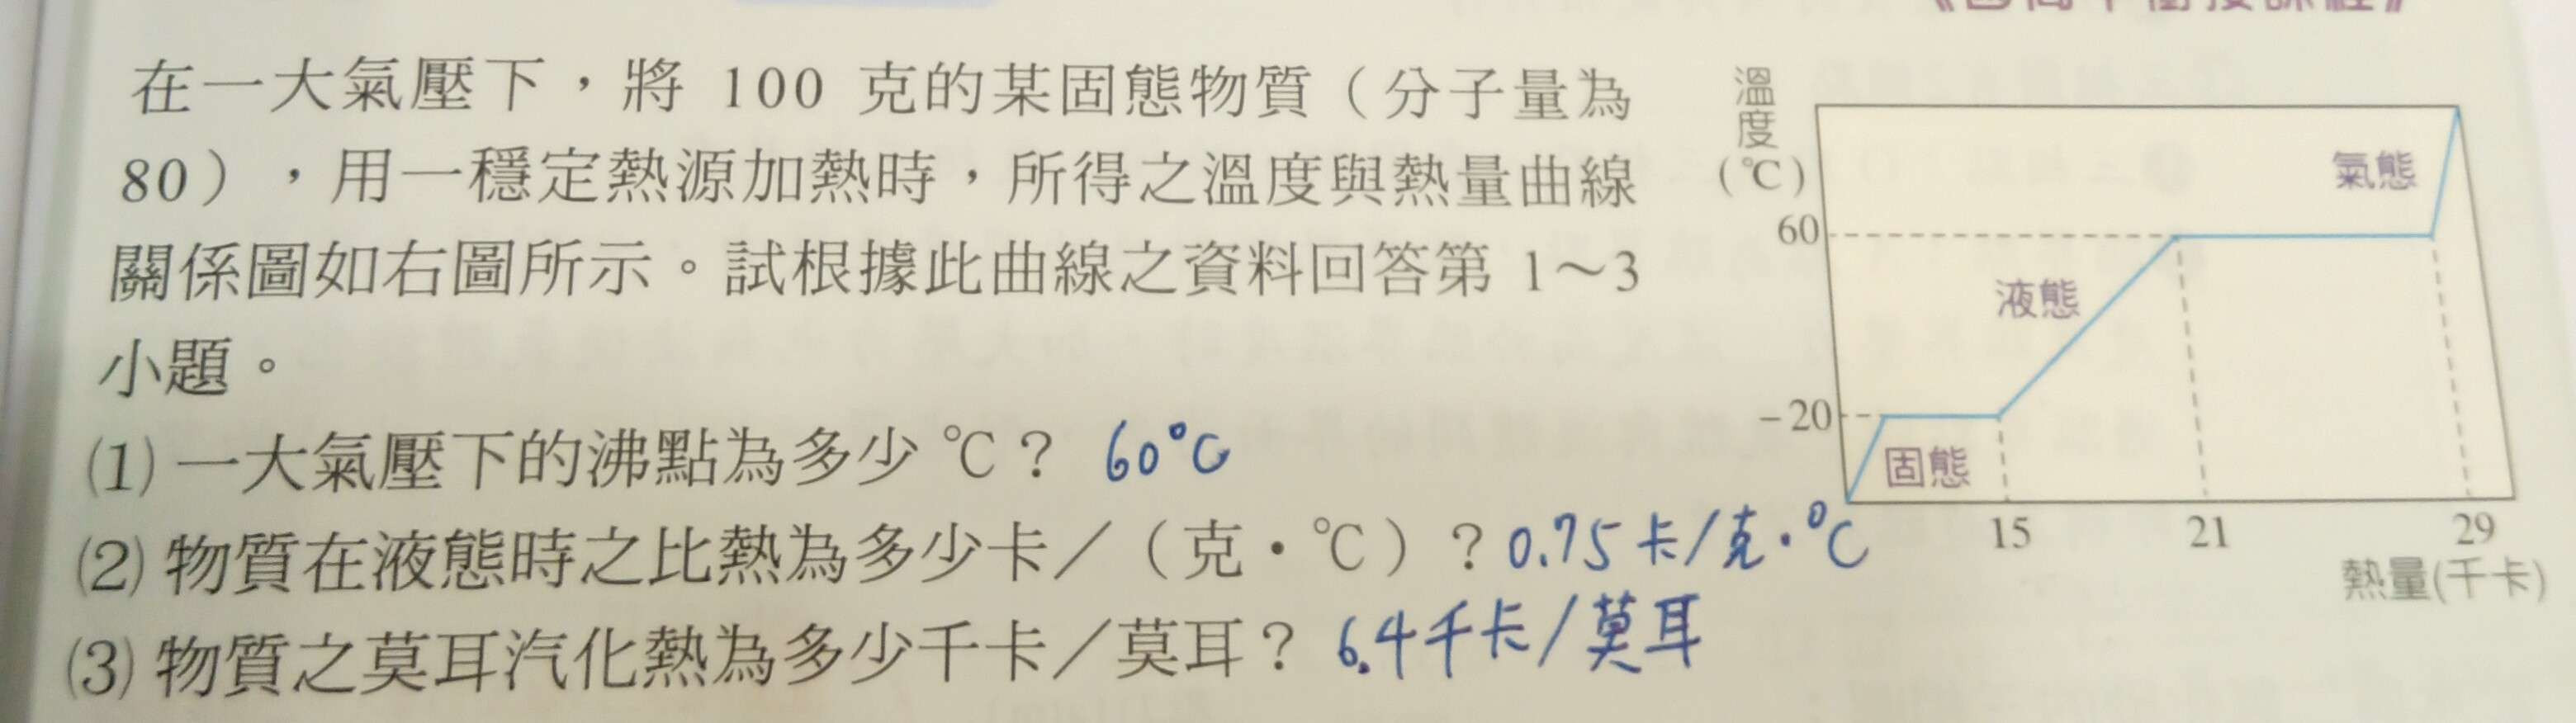 在一大氣壓下，將 100 克的某固態物質（分子量為
80），用一穩定熱源加熱時，所得之溫度與熱量曲線
關係圖如右圖所示。試根據此曲線之資料回答第 1～3
小題。
(1) 一大氣壓下的沸點為多少 ℃？ 60°C
(2) 物質在液態時之比熱為多少卡／（克・℃）？0.75卡/克・°C
(3) 物質之莫耳汽化熱為多少千卡／莫耳？ 6.4千卡/莫耳
溫度
(℃)
60
-20
氣態
液態
固態
15 21 29
熱量(千卡)